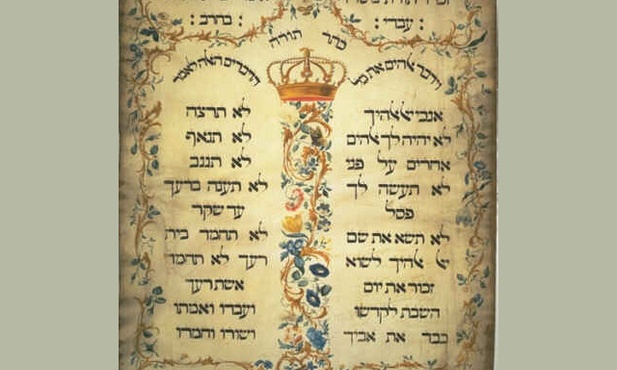 עבדי :
: בחרב
כתר תורה
וידבר אלהים את כל
הדברים האלה לאמר
אנכי יי אלהיך
לא יהיה לך אלהים
אחרים על פני
לא תעשה לך
פסל
לא תשא את שם
יי אלהיך לשוא
זכור את יום
השבת לקדשו
כבד את אביך
לא תרצח
לא תנאף
לא תגנב
לא תענה ברעך
עד שקר
לא תחמד בית
רעך לא תחמד
אשת רעך
ועבדו ואמתו
ושורו וחמרו